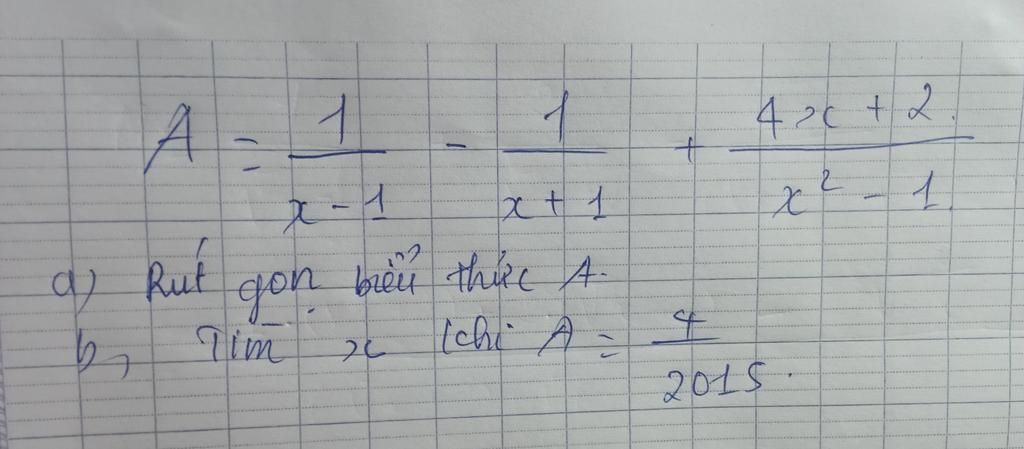 A = \frac{1}{x-1} - \frac{1}{x+1} + \frac{4x+2}{x^2-1}
a) Rút gọn biểu thức A.
b, Tìm x khi A = \frac{4}{2015}.